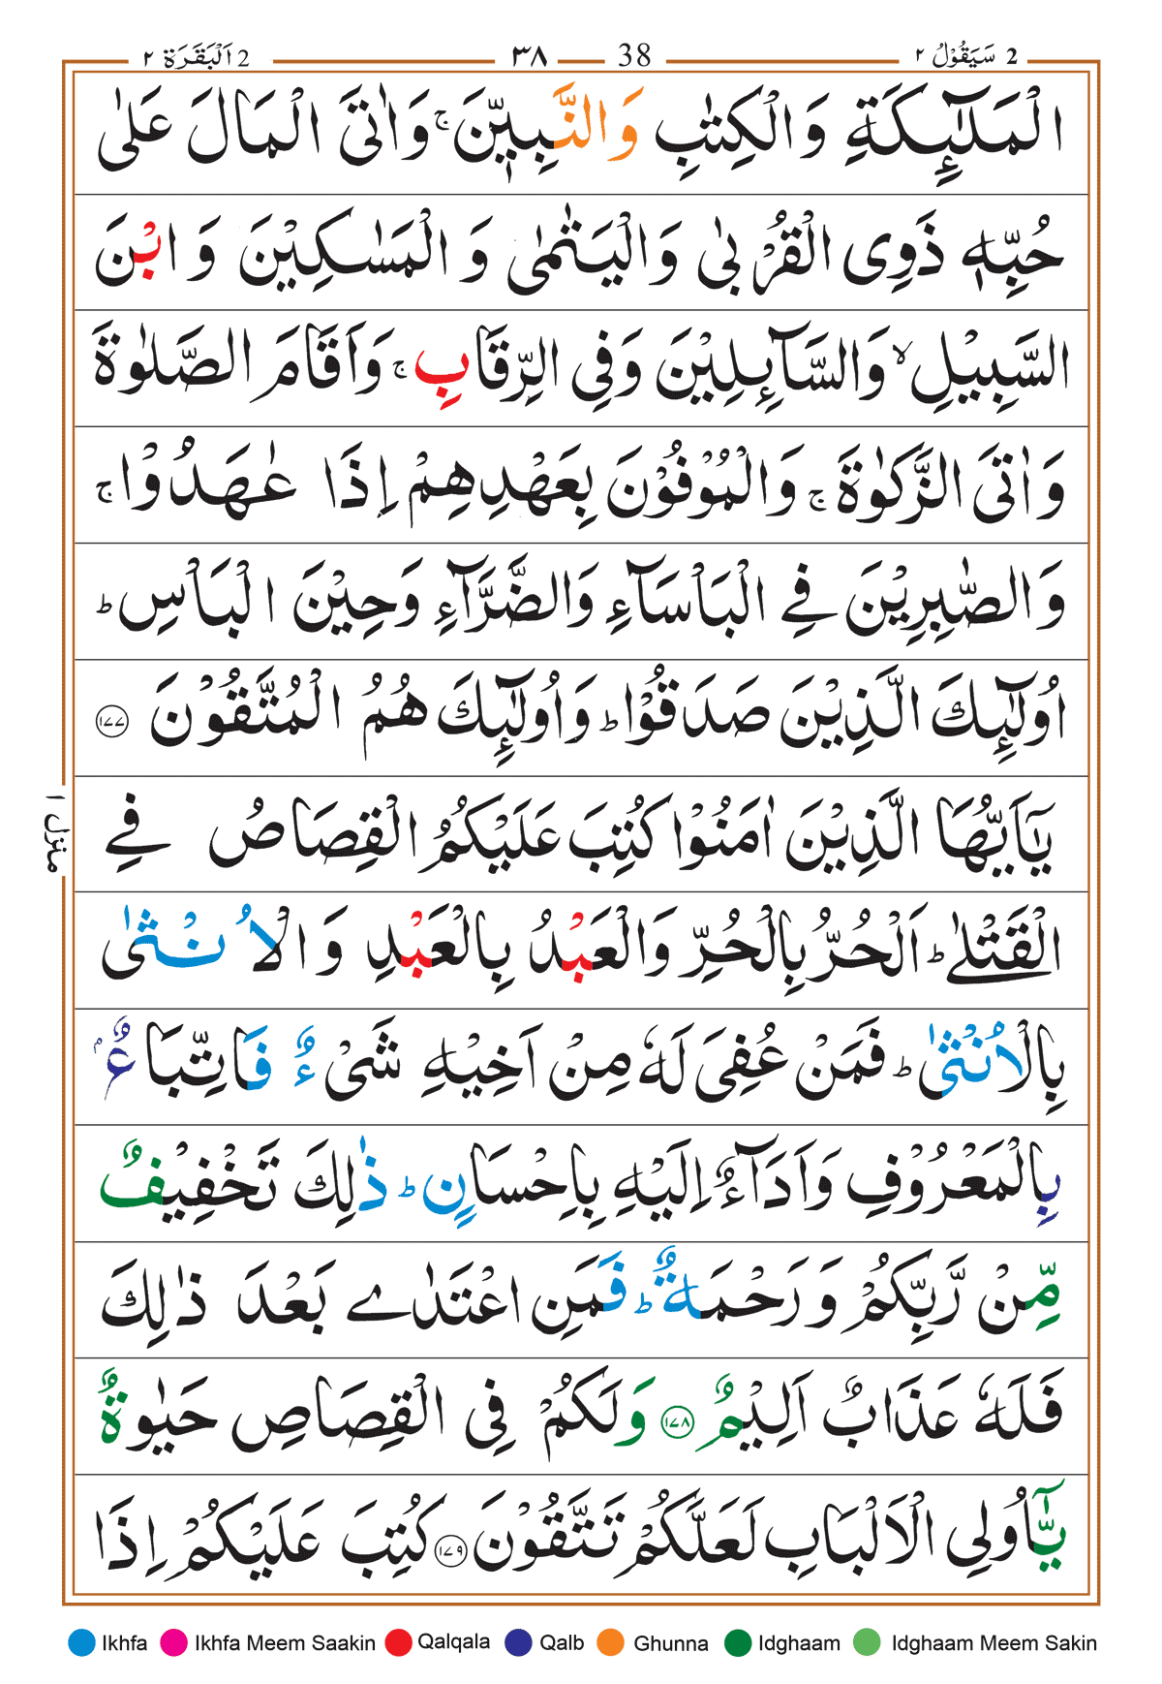 2 سَيَقُوْلُ ٢ 38 ٣٨ 2 اَلْبَقَرَة ٢
الْمَلٰٓئِكَةِ وَالْكِتٰبِ وَالنَّبِيّٖنَ ۚ وَاٰتَى الْمَالَ عَلٰى
حُبِّهٖ ذَوِى الْقُرْبٰى وَالْيَتٰمٰى وَ الْمَسٰكِيْنَ وَ ابْنَ
السَّبِيْلِ ۙ وَالسَّآئِلِيْنَ وَفِى الرِّقَابِ ۚ وَاَقَامَ الصَّلٰوةَ
وَ اٰتَى الزَّكٰوةَ ۚ وَالْمُوْفُوْنَ بِعَهْدِهِمْ اِذَا عٰهَدُوْا ۚ
وَالصّٰبِرِيْنَ فِى الْبَاْسَآءِ وَالضَّرَّآءِ وَحِيْنَ الْبَاْسِ ؕ
اُولٰٓئِكَ الَّذِيْنَ صَدَقُوْا ؕ وَاُولٰٓئِكَ هُمُ الْمُتَّقُوْنَ ١٧٧
يٰٓاَيُّهَا الَّذِيْنَ اٰمَنُوْا كُتِبَ عَلَيْكُمُ الْقِصَاصُ فِى
الْقَتْلٰى ؕ اَلْحُرُّ بِالْحُرِّ وَالْعَبْدُ بِالْعَبْدِ وَ الْاُنْثٰى
بِالْاُنْثٰى ؕ فَمَنْ عُفِىَ لَهٗ مِنْ اَخِيْهِ شَىْءٌ فَاتِّبَاعٌۢ
بِالْمَعْرُوْفِ وَاَدَآءٌ اِلَيْهِ بِاِحْسَانٍ ؕ ذٰلِكَ تَخْفِيْفٌ
مِّنْ رَّبِّكُمْ وَ رَحْمَةٌ ؕ فَمَنِ اعْتَدٰى بَعْدَ ذٰلِكَ
فَلَهٗ عَذَابٌ اَلِيْمٌ ١٧٨ وَلَكُمْ فِى الْقِصَاصِ حَيٰوةٌ
يّٰٓاُولِى الْاَلْبَابِ لَعَلَّكُمْ تَتَّقُوْنَ ١٧٩ كُتِبَ عَلَيْكُمْ اِذَا
منزل ١
Ikhfa Ikhfa Meem Saakin Qalqala Qalb Ghunna Idghaam Idghaam Meem Sakin